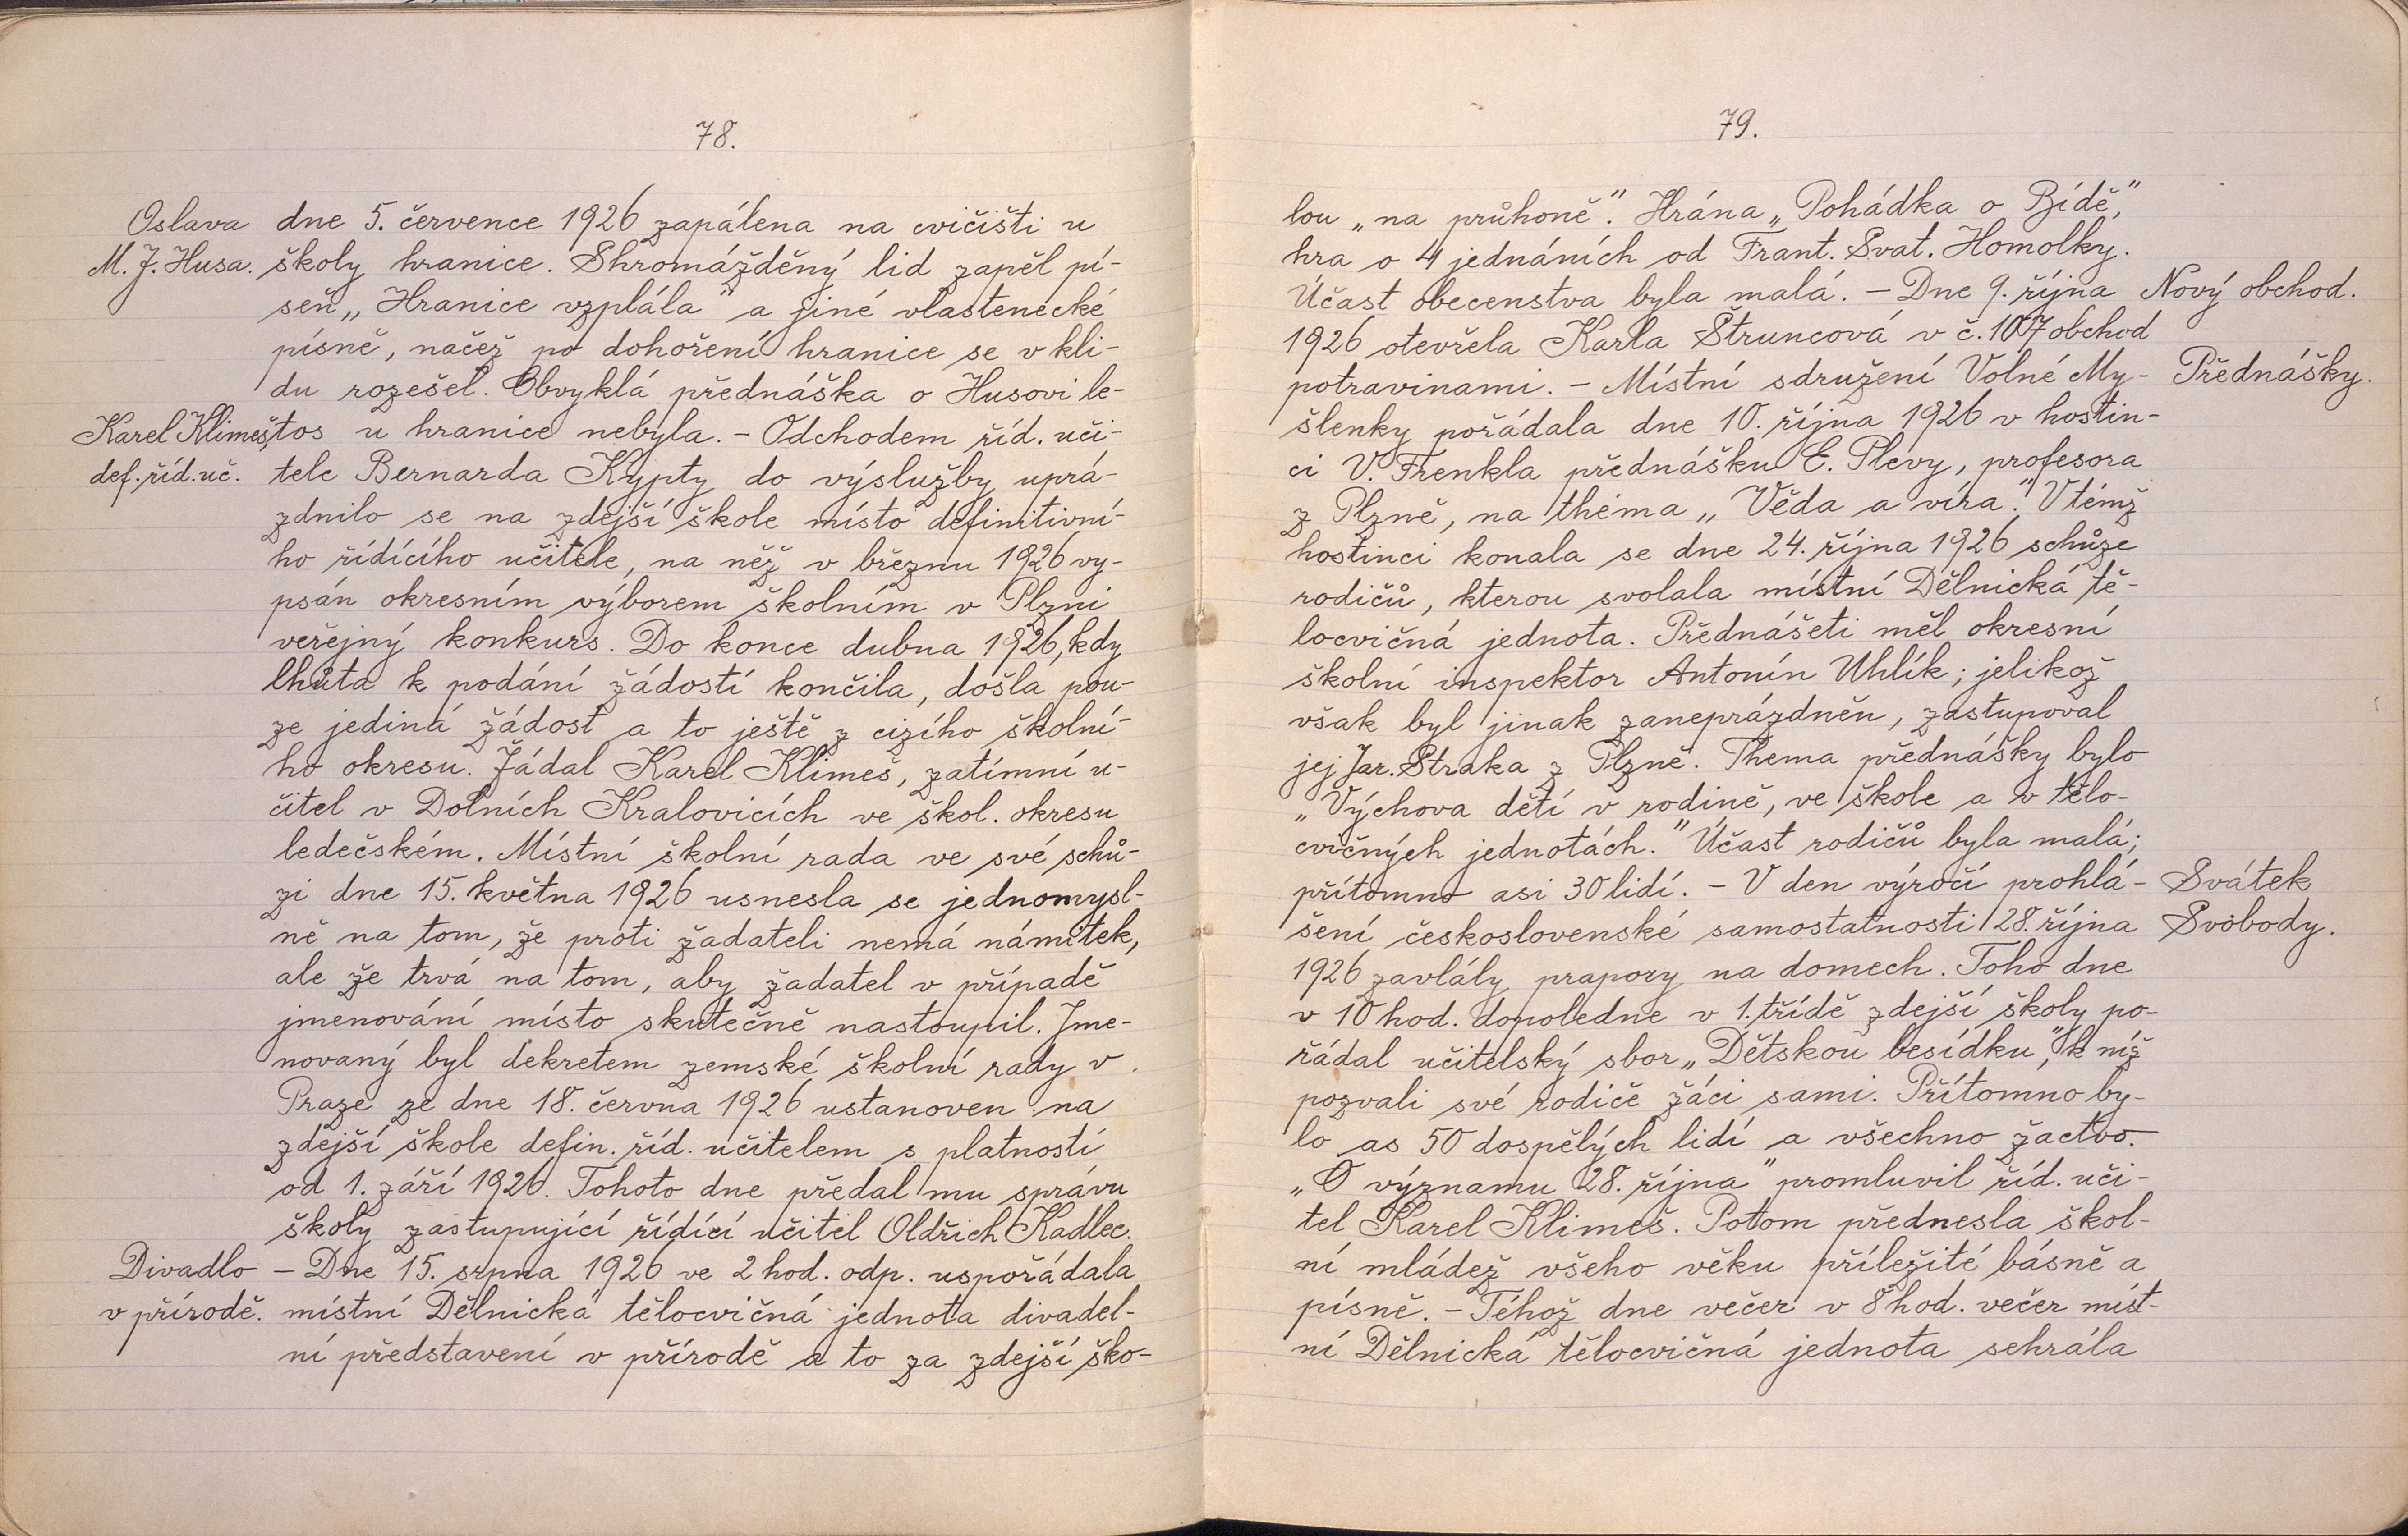 78.
Oslava dne 5. července 1926 zapálena na cvičišti u
M. J. Husa. školy hranice. Shromážděný lid zapěl pí-
seň „Hranice vzplála" a jiné vlastenecké
písně, načež po dohoření hranice se v kli-
du rozešel. Obvyklá přednáška o Husovi le-
Karel Klimeš, tos u hranice nebyla. - Odchodem říd. uči-
def. říd. uč. tele Bernarda Kypty do výslužby uprá-
zdnilo se na zdejší škole místo definitivní-
ho řídícího učitele, na něž v březnu 1926 vy-
psán okresním výborem školním v Plzni
veřejný konkurs. Do konce dubna 1926, kdy
lhůta k podání žádostí končila, došla pou-
ze jediná žádost a to ještě z cizího školní-
ho okresu. Žádal Karel Klimeš, zatímní u-
čitel v Dolních Kralovicích ve škol. okresu
ledečském. Místní školní rada ve své schů-
zi dne 15. května 1926 usnesla se jednomysl-
ně na tom, že proti žadateli nemá námitek,
ale že trvá na tom, aby žadatel v případě
jmenování místo skutečně nastoupil. Jme-
novaný byl dekretem zemské školní rady v
Praze ze dne 18. června 1926 ustanoven na
zdejší škole defin. říd. učitelem s platností
od 1. září 1926. Tohoto dne předal mu správu
školy zastupující řídící učitel Oldřich Kadlec.
Divadlo - Dne 15. srpna 1926 ve 2 hod. odp. uspořádala
v přírodě. místní Dělnická tělocvičná jednota divadel-
ní představení v přírodě a to za zdejší ško-
79.
lou „na průhoně". Hrána „Pohádka o Bídě",
hra o 4 jednáních od Frant. Svat. Homolky.
Účast obecenstva byla malá. - Dne 9. října Nový obchod.
1926 otevřela Karla Štruncová v č. 107 obchod
potravinami. - Místní sdružení Volné My- Přednášky.
šlenky pořádala dne 10. října 1926 v hostin-
ci V. Frenkla přednášku E. Plevy, profesora
z Plzně, na théma „Věda a víra". V témž
hostinci konala se dne 24. října 1926 schůze
rodičů, kterou svolala místní Dělnická tě-
locvičná jednota. Přednášeti měl okresní
školní inspektor Antonín Uhlík; jelikož
však byl jinak zaneprázdněn, zastupoval
jej Jar. Straka z Plzně. Thema přednášky bylo
„Výchova dětí v rodině, ve škole a v tělo-
cvičných jednotách." Účast rodičů byla malá;
přítomno asi 30 lidí. - V den výročí prohlá- Svátek
šení československé samostatnosti 28. října Svobody.
1926 zavlály prapory na domech. Toho dne
v 10 hod. dopoledne v 1. třídě zdejší školy po-
řádal učitelský sbor „Dětskou besídku", k níž
pozvali své rodiče žáci sami. Přítomno by-
lo as 50 dospělých lidí a všechno žactvo.
„O významu 28. října" promluvil říd. uči-
tel Karel Klimeš. Potom přednesla škol-
ní mládež všeho věku příležité básně a
písně. - Téhož dne večer v 8 hod. večer míst-
ní Dělnická tělocvičná jednota sehrála